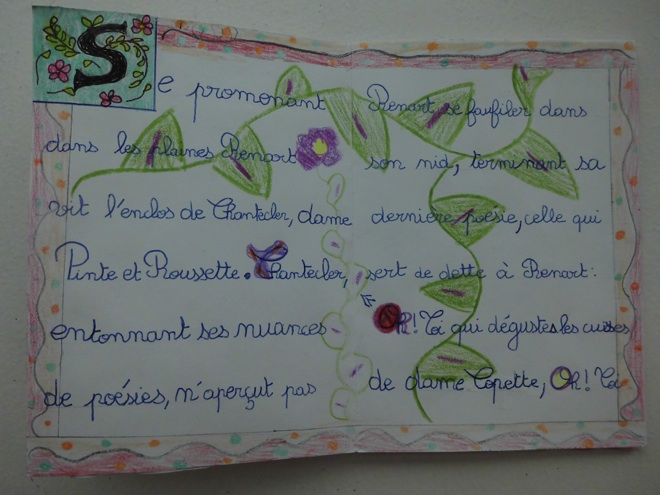 Se promonant
dans les plaines Renart
vit l'enclos de Chantecler, dame
Pinte et Roussette. Chantecler,
entonnant ses nuances
de poésies, n'aperçut pas
Renart se faufiler dans
son nid, terminant sa
dernière poésie, celle qui
sert de dette à Renart:
Oh! Toi qui dégustes les cuisses
de dame Copette, Oh! Toi